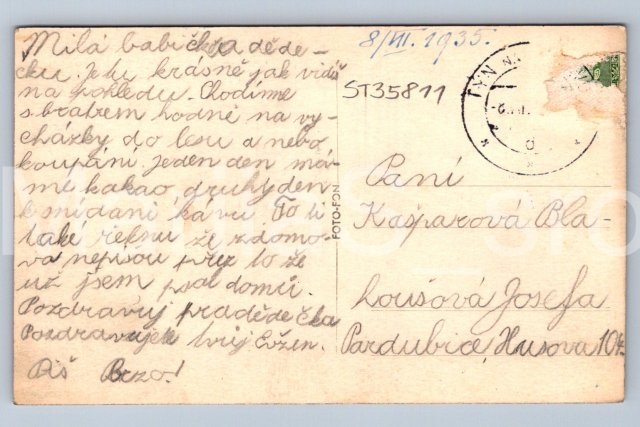 Milá babičko a děde-
čku. Je tu krásně jak vidíš
na pohledu. Chodíme
s bratrem hodně na vy-
cházky do lesu a nebo
koupání. Jeden den má-
me kakao druhý den
k snídani kávu. To ti
také řeknu že z domo-
va nepisou prý to že
už jsem psal domů.
Pozdravuj pradědečka
Pozdravujek tvůj Evžen.
Piš Brzo!
8/VII. 1935.
ST35811
TÝN N.
FOTO-FON
Paní
Kašparová Bla-
houšová Josefa
Pardubice, Husova 104.